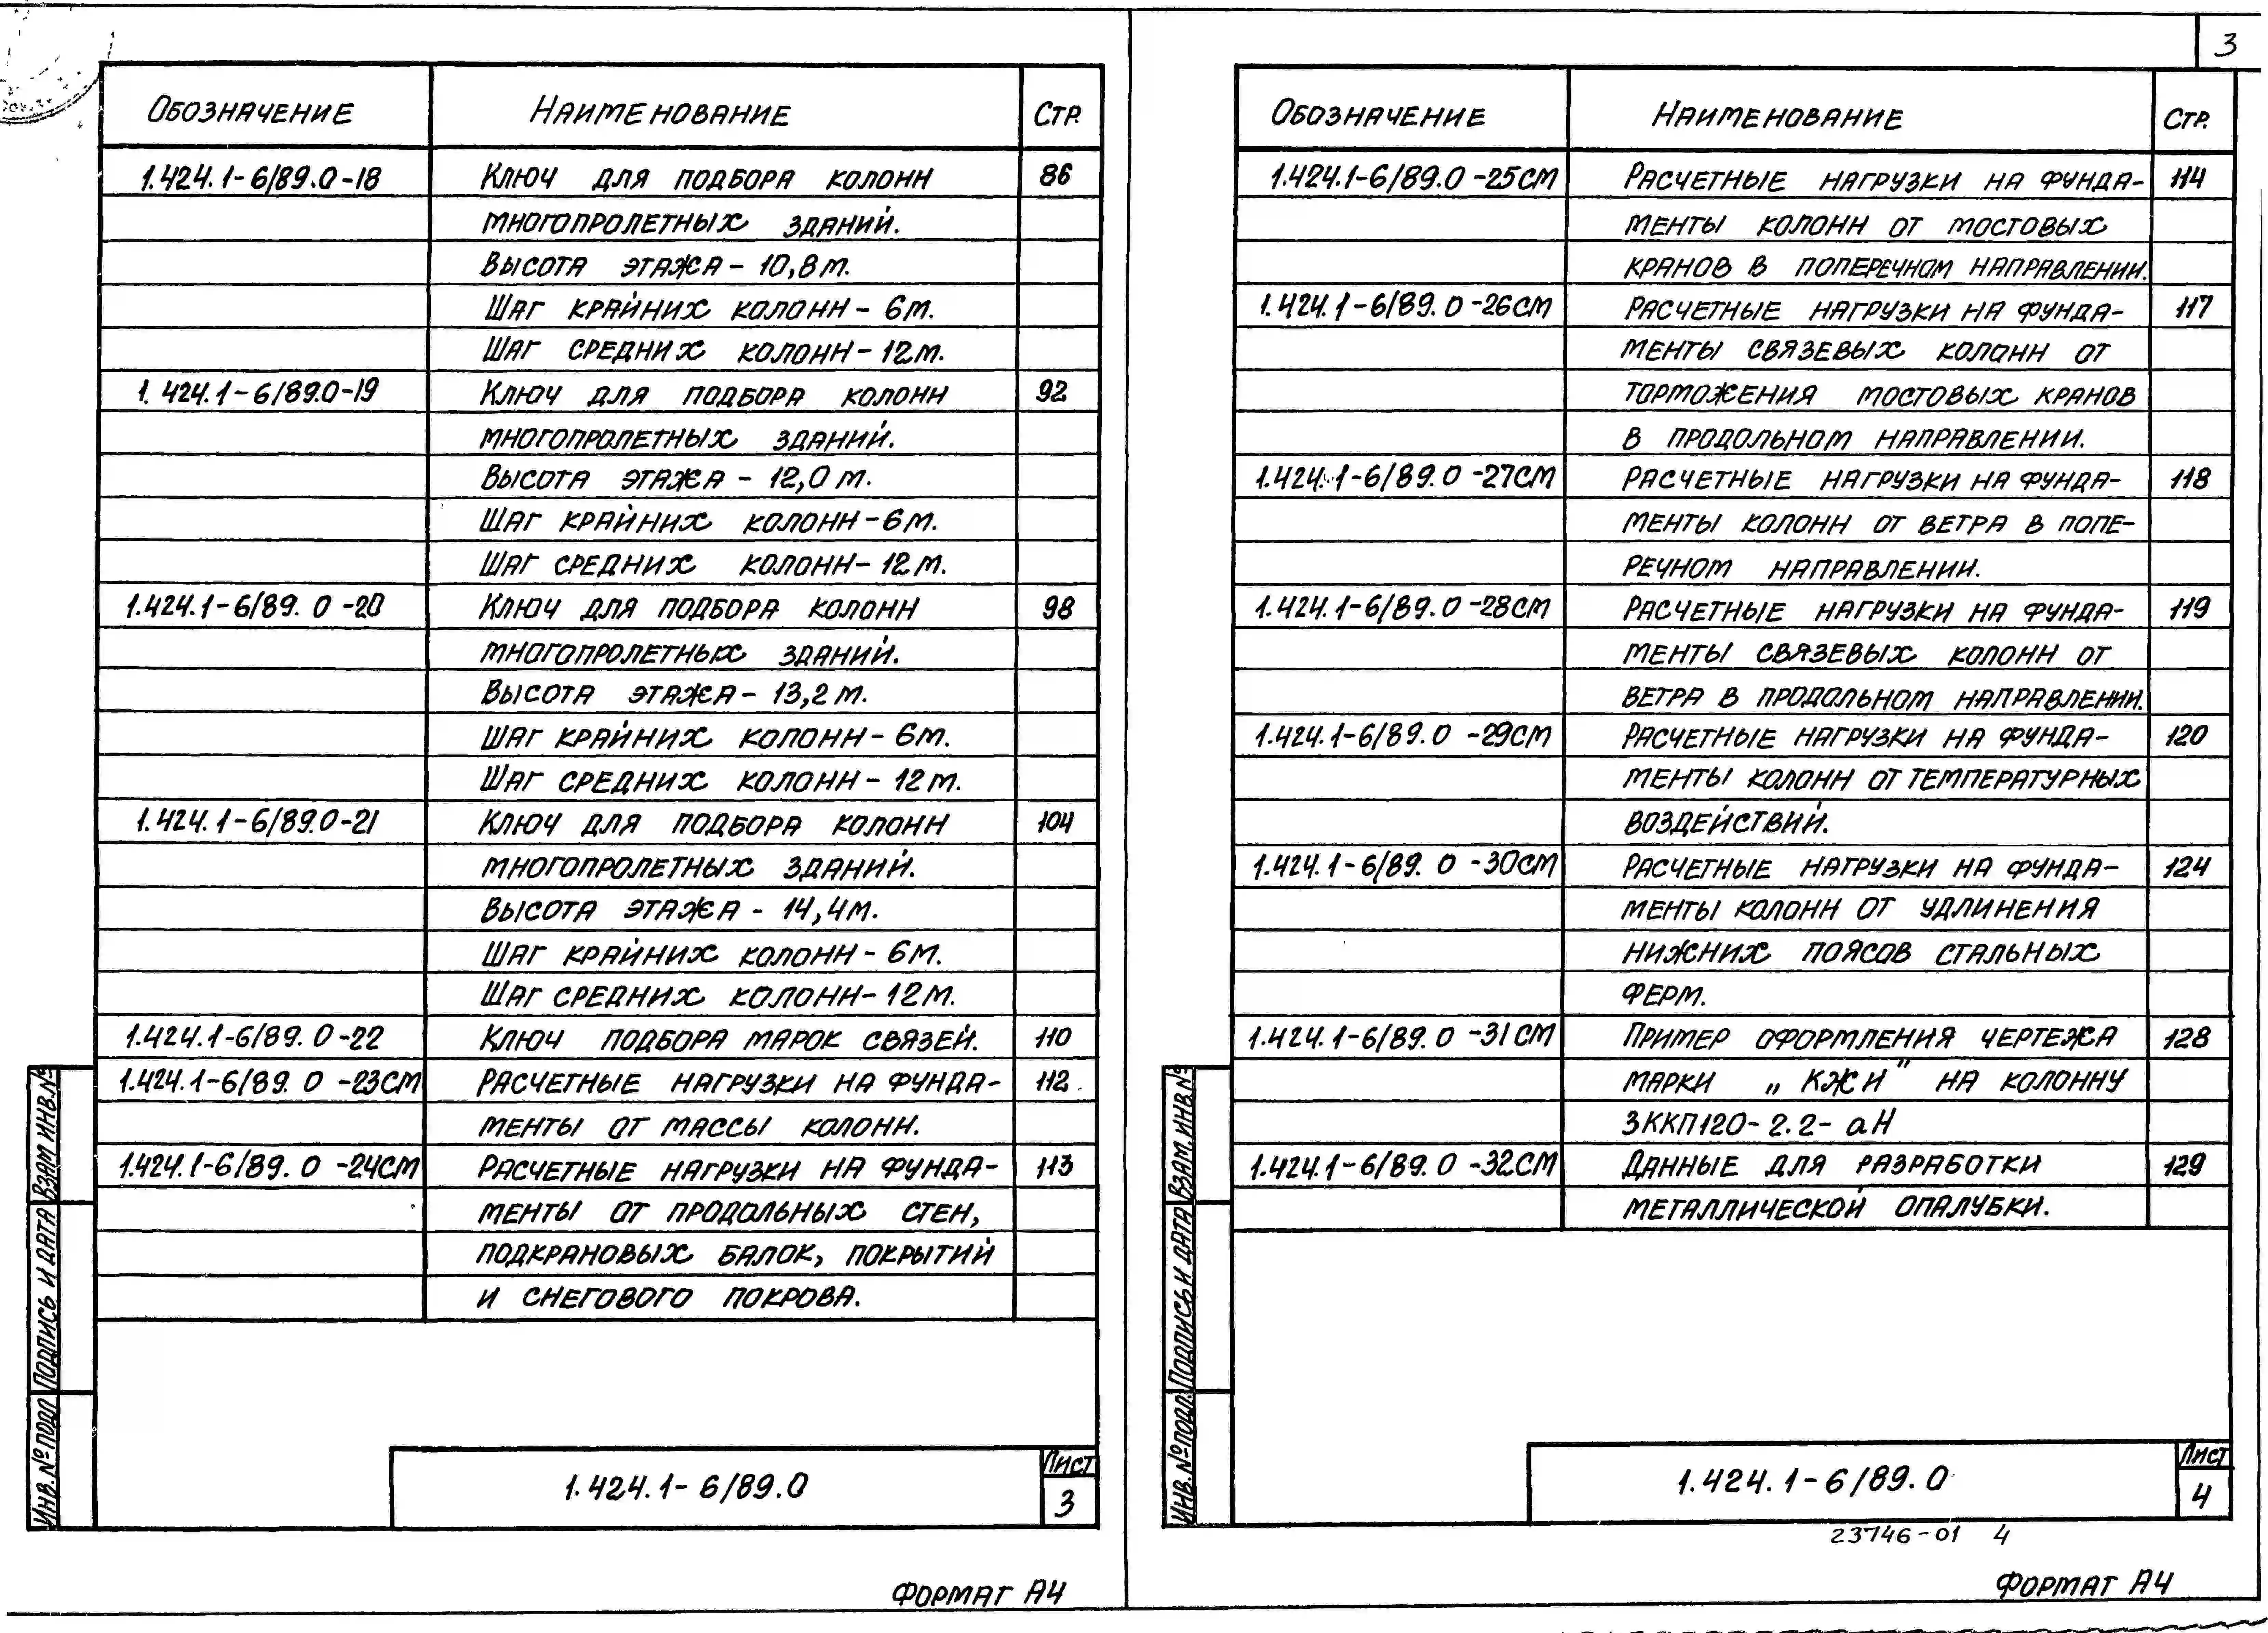 3
Обозначение Наименование Стр.
1.424.1-6/89.0-18 Ключ для подбора колонн 86
многопролетных зданий.
Высота этажа - 10,8 м.
Шаг крайних колонн - 6м.
Шаг средних колонн - 12м.
1.424.1-6/89.0-19 Ключ для подбора колонн 92
многопролетных зданий.
Высота этажа - 12,0 м.
Шаг крайних колонн - 6м.
Шаг средних колонн - 12м.
1.424.1-6/89.0-20 Ключ для подбора колонн 98
многопролетных зданий.
Высота этажа - 13,2 м.
Шаг крайних колонн - 6м.
Шаг средних колонн - 12м.
1.424.1-6/89.0-21 Ключ для подбора колонн 104
многопролетных зданий.
Высота этажа - 14,4м.
Шаг крайних колонн - 6м.
Шаг средних колонн - 12м.
1.424.1-6/89.0-22 Ключ подбора марок связей. 110
1.424.1-6/89.0-23СМ Расчетные нагрузки на фунда- 112
менты от массы колонн.
1.424.1-6/89.0-24СМ Расчетные нагрузки на фунда- 113
менты от продольных стен,
подкрановых балок, покрытий
и снегового покрова.
Взам инв.№
Подпись и дата
Инв. № подл
1.424.1-6/89.0
Лист
3
Формат А4
Обозначение Наименование Стр.
1.424.1-6/89.0-25СМ Расчетные нагрузки на фунда- 114
менты колонн от мостовых
кранов в поперечном направлении.
1.424.1-6/89.0-26СМ Расчетные нагрузки на фунда- 117
менты связевых колонн от
торможения мостовых кранов
в продольном направлении.
1.424.1-6/89.0-27СМ Расчетные нагрузки на фунда- 118
менты колонн от ветра в попе-
речном направлении.
1.424.1-6/89.0-28СМ Расчетные нагрузки на фунда- 119
менты связевых колонн от
ветра в продольном направлении.
1.424.1-6/89.0-29СМ Расчетные нагрузки на фунда- 120
менты колонн от температурных
воздействий.
1.424.1-6/89.0-30СМ Расчетные нагрузки на фунда- 124
менты колонн от удлинения
нижних поясов стальных
ферм.
1.424.1-6/89.0-31СМ Пример оформления чертежа 128
марки „КЖИ" на колонну
3ККП120-2.2-аН
1.424.1-6/89.0-32СМ Данные для разработки 129
металлической опалубки.
Взам. инв.№
Подпись и дата
Инв. № подл.
1.424.1-6/89.0
Лист
4
23746-01 4
Формат А4